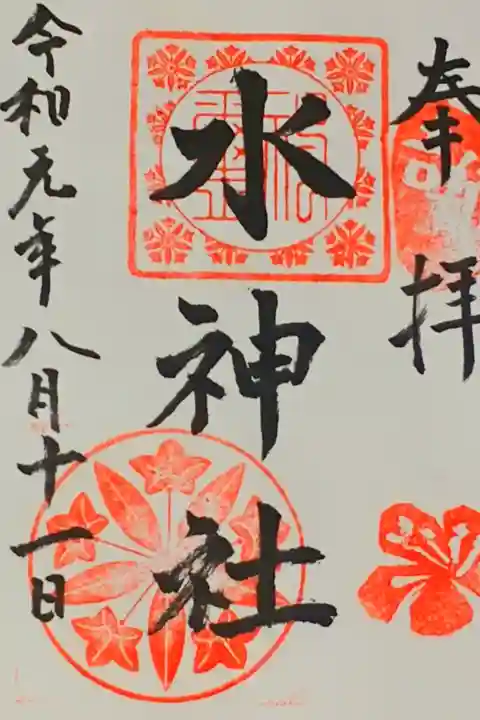 奉拝
水神社
令和元年八月十一日